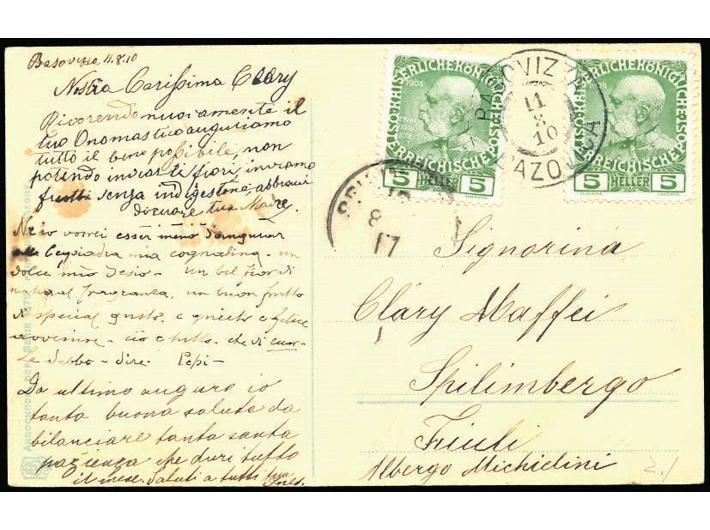 Basovizza 11.8.10
Nostra Carissima Clary
Ricorrendo nuovamente il
tuo Onomastico auguriamo
tutto il bene possibile, non
potendo inviarti fiori, inviamo
frutti senza indigestione, abbraci
di cuore tua Madre.
Nè io vorrei esser meno d'augurar
alla leggiadra mia cognatina - un
dolce mio desio - un bel fior di
natural fragranza, un buon frutto
di special gusto, e quieto e felice
avvenire - ciò è tutto - che di cuor
Le debbo - dire. Pepi -
Da ultimo auguro io
tanta buona salute da
bilanciare tanta santa
pazienza che duri tutto
il mese. Saluti a tutti tua
Ines.
KAISERLICHE KÖNIGLICHE
ÖSTERREICHISCHE POST
1908
5 HELLER 5
KAISERLICHE KÖNIGLICHE
ÖSTERREICHISCHE POST
5 HELLER 5
BASOVIZZA
11
8
10
BAZOVICA
8
17
Signorina
Clary Maffei
Spilimbergo
Friuli
Albergo Michielini